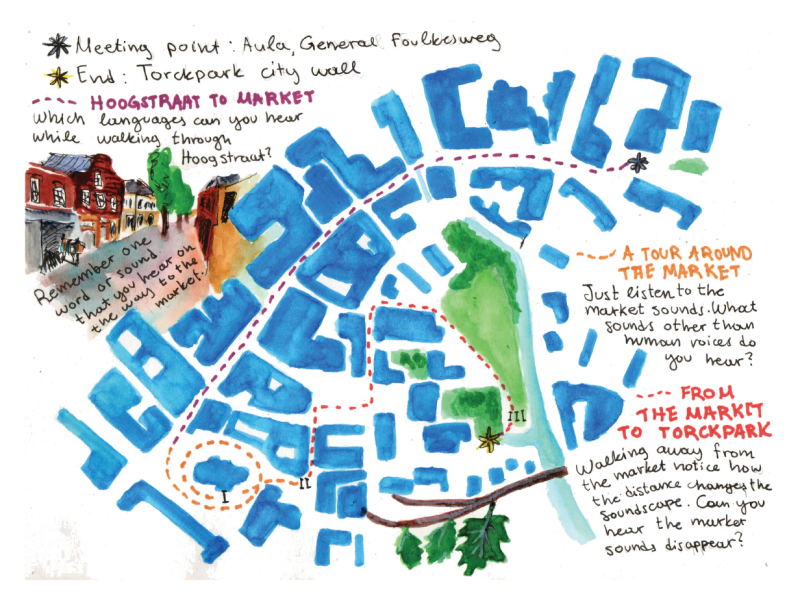 Meeting point: Aula, General Foulkesweg
End: Torckpark city wall
HOOGSTRAAT TO MARKET
Which languages can you hear
while walking through
Hoogstraat?
Remember one
word or sound
that you hear on
the way to the
market.
A TOUR AROUND
THE MARKET
Just listen to the
market sounds. What
sounds other than
human voices do
you hear?
FROM
THE MARKET
TO TORCKPARK
Walking away from
the market notice how
the distance changes the
soundscape. Can you
hear the market
sounds disappear?
I
II
III